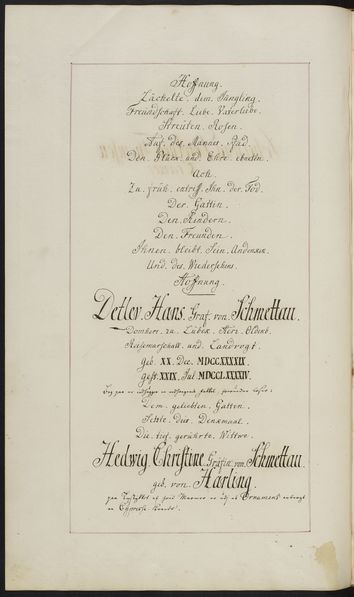 Hoffnung.
Lächelte. dem. Jüngling.
Freundschaft. Liebe. Vaterliebe.
Streuten. Rosen.
Auf. des. Mannes. Pfad.
Den. Glück. und. Ehre. ebneten.
Ach.
Zu. früh. entriss. Ihn. der. Tod.
Der. Gatten.
Den. Kindern.
Den. Freunden.
Ihnen. bleibt. Sein. Andenken.
Und. des. Wiedersehens.
Hoffnung.
Detlev. Hans. Graf. von. Schmettau.
Domherr. zu. Lübek.
Reisemarschall. und. Landvogt.
geb. XX. Dec. MDCCXXXXIX.
gest. XXIX. Jul. MDCCLXXXXIV.
Dem. geliebten. Gatten.
Setzte. dies. Denkmaal.
Die. tief. gerührte. Wittwe.
Hedwig. Christine. Gräfin. von. Schmettau.
geb. von. Harling.